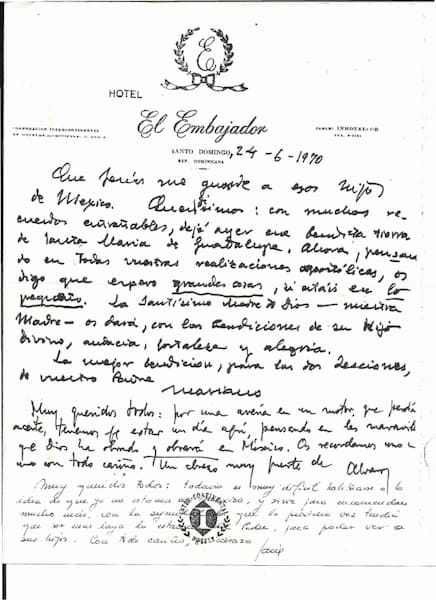 E
HOTEL
El Embajador
CORPORACION INTERCONTINENTAL
SANTO DOMINGO, 24-6-1970
REP. DOMINICANA
CABLE: INHOTELCOR
Que Jesús me guarde a esos hijos
de Mexico. Queridísimos: con muchos re-
cuerdos entrañables, dejé ayer esa bendita tierra
de Santa Maria de Guadalupe. Ahora, pensan
do en todas vuestras realizaciones apostólicas, os
digo que espero grandes cosas, si estáis en lo
pequeño. La Santísima Madre de Dios – nuestra
Madre – os dará, con las bendiciones de su Hijo
divino, audacia, fortaleza y alegría.
La mejor bendición, para las dos Secciones,
de vuestro Padre
Mariano
Muy queridos todos: por una avería en un motor, que perdía
aceite, tenemos que estar un día aquí, pensando en las maravillas
que Dios ha obrado y obrará en México. Os recordamos uno a
uno con todo cariño. Un abrazo muy fuerte de
Alvaro
Muy queridos todos: todavía es muy difícil habituarse a la
idea de que ya no estamos y sirve para encomendar
mucho más, con la que la próxima vez tendrá
que ser más larga la estancia Padre, para poder ver a
sus hijos. Con todo cariño, abrazo
Javi
INTER-CONTINENTAL
I
HOTELS